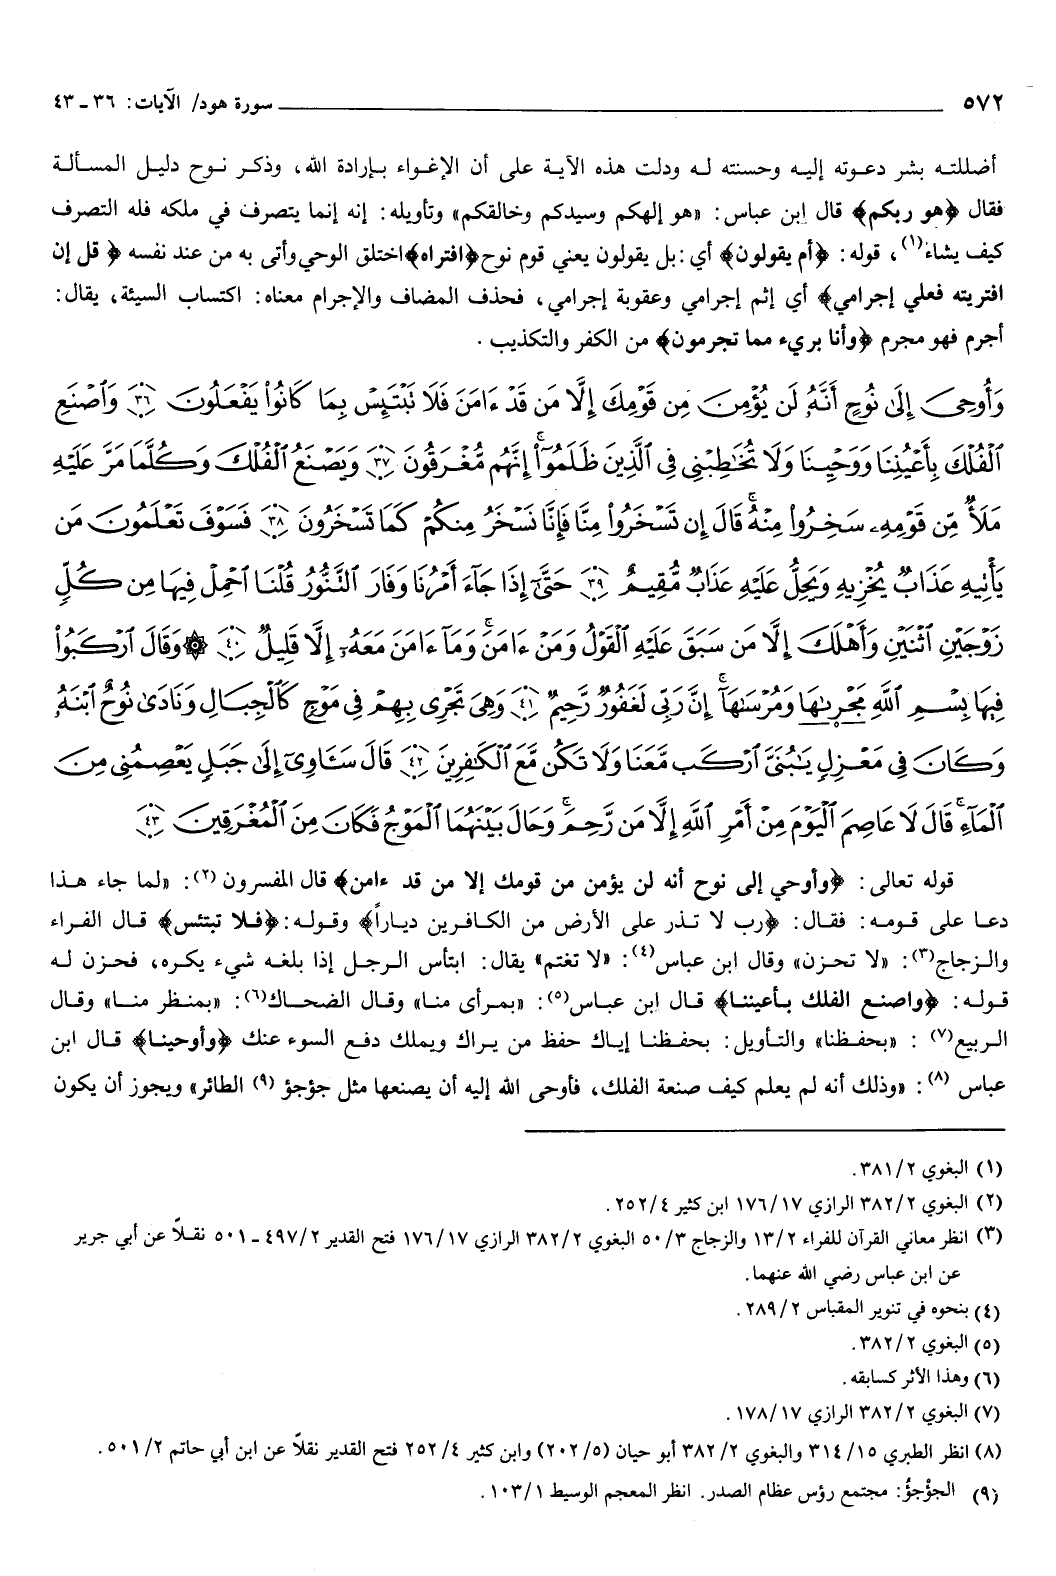 ٥٧٢ سورة هود/ الآيات: ٣٦ ـ ٤٣
أضللته بشر دعوته إليه وحسنته له ودلت هذه الآية على أن الإغواء بإرادة الله، وذكر نوح دليل المسألة
فقال ﴿هو ربكم﴾ قال ابن عباس: «هو إلهكم وسيدكم وخالقكم» وتأويله: إنه إنما يتصرف في ملكه فله التصرف
كيف يشاء(١)، قوله: ﴿أم يقولون﴾ أي: بل يقولون يعني قوم نوح ﴿افتراه﴾ اختلق الوحي وأتى به من عند نفسه ﴿قل إن
افتريته فعلي إجرامي﴾ أي إثم إجرامي وعقوبة إجرامي، فحذف المضاف والإجرام معناه: اكتساب السيئة، يقال:
أجرم فهو مجرم ﴿وأنا بريء مما تجرمون﴾ من الكفر والتكذيب.
وَأُوحِىَ إِلَىٰ نُوحٍ أَنَّهُۥ لَن يُؤْمِنَ مِن قَوْمِكَ إِلَّا مَن قَدْ ءَامَنَ فَلَا تَبْتَئِسْ بِمَا كَانُوا۟ يَفْعَلُونَ ٣٦ وَٱصْنَعِ
ٱلْفُلْكَ بِأَعْيُنِنَا وَوَحْيِنَا وَلَا تُخَـٰطِبْنِى فِى ٱلَّذِينَ ظَلَمُوٓا۟ ۚ إِنَّهُم مُّغْرَقُونَ ٣٧ وَيَصْنَعُ ٱلْفُلْكَ وَكُلَّمَا مَرَّ عَلَيْهِ
مَلَأٌ مِّن قَوْمِهِۦ سَخِرُوا۟ مِنْهُ ۚ قَالَ إِن تَسْخَرُوا۟ مِنَّا فَإِنَّا نَسْخَرُ مِنكُمْ كَمَا تَسْخَرُونَ ٣٨ فَسَوْفَ تَعْلَمُونَ مَن
يَأْتِيهِ عَذَابٌ يُخْزِيهِ وَيَحِلُّ عَلَيْهِ عَذَابٌ مُّقِيمٌ ٣٩ حَتَّىٰٓ إِذَا جَآءَ أَمْرُنَا وَفَارَ ٱلتَّنُّورُ قُلْنَا ٱحْمِلْ فِيهَا مِن كُلٍّ
زَوْجَيْنِ ٱثْنَيْنِ وَأَهْلَكَ إِلَّا مَن سَبَقَ عَلَيْهِ ٱلْقَوْلُ وَمَنْ ءَامَنَ ۚ وَمَآ ءَامَنَ مَعَهُۥٓ إِلَّا قَلِيلٌ ٤٠ ۞ وَقَالَ ٱرْكَبُوا۟
فِيهَا بِسْمِ ٱللَّهِ مَجْر۪ىٰهَا وَمُرْسَىٰهَآ ۚ إِنَّ رَبِّى لَغَفُورٌ رَّحِيمٌ ٤١ وَهِىَ تَجْرِى بِهِمْ فِى مَوْجٍ كَٱلْجِبَالِ وَنَادَىٰ نُوحٌ ٱبْنَهُۥ
وَكَانَ فِى مَعْزِلٍ يَـٰبُنَىَّ ٱرْكَب مَّعَنَا وَلَا تَكُن مَّعَ ٱلْكَـٰفِرِينَ ٤٢ قَالَ سَـَٔاوِىٓ إِلَىٰ جَبَلٍ يَعْصِمُنِى مِنَ
ٱلْمَآءِ ۚ قَالَ لَا عَاصِمَ ٱلْيَوْمَ مِنْ أَمْرِ ٱللَّهِ إِلَّا مَن رَّحِمَ ۚ وَحَالَ بَيْنَهُمَا ٱلْمَوْجُ فَكَانَ مِنَ ٱلْمُغْرَقِينَ ٤٣
قوله تعالى: ﴿وأوحي إلى نوح أنه لن يؤمن من قومك إلا من قد ءامن﴾ قال المفسرون(٢): «لما جاء هذا
دعا على قومه: فقال: ﴿رب لا تذر على الأرض من الكافرين دياراً﴾ وقوله: ﴿فلا تبتئس﴾ قال الفراء
والزجاج(٣): «لا تحزن» وقال ابن عباس(٤): «لا تغتم» يقال: ابتأس الرجل إذا بلغه شيء يكره، فحزن له
قوله: ﴿واصنع الفلك بأعيننا﴾ قال ابن عباس(٥): «بمرأى منا» وقال الضحاك(٦): «بمنظر منا» وقال
الربيع(٧): «بحفظنا» والتأويل: بحفظنا إياك حفظ من يراك ويملك دفع السوء عنك ﴿وأوحينا﴾ قال ابن
عباس(٨): «وذلك أنه لم يعلم كيف صنعة الفلك، فأوحى الله إليه أن يصنعها مثل جؤجؤ(٩) الطائر» ويجوز أن يكون
(١) البغوي ٣٨١/٢.
(٢) البغوي ٣٨٢/٢ الرازي ١٧٦/١٧ ابن كثير ٢٥٢/٤.
(٣) انظر معاني القرآن للفراء ١٣/٢ والزجاج ٥٠/٣ البغوي ٣٨٢/٢ الرازي ١٧٦/١٧ فتح القدير ٤٩٧/٢ ـ ٥٠١ نقلاً عن أبي جرير
عن ابن عباس رضي الله عنهما.
(٤) بنحوه في تنوير المقباس ٢٨٩/٢.
(٥) البغوي ٣٨٢/٢.
(٦) وهذا الأثر كسابقه.
(٧) البغوي ٣٨٢/٢ الرازي ١٧٨/١٧.
(٨) انظر الطبري ٣١٤/١٥ والبغوي ٣٨٢/٢ أبو حيان (٢٠٢/٥) وابن كثير ٢٥٢/٤ فتح القدير نقلاً عن ابن أبي حاتم ٥٠١/٢.
(٩) الجؤْجؤُ: مجتمع رؤس عظام الصدر. انظر المعجم الوسيط ١٠٣/١.